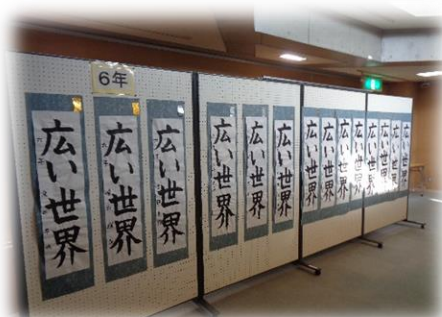 6年
広い世界
広い世界
広い世界
広い世界
広い世界
広い世界
広い世界
広い世界
広い世界
広い世界
広い世界
広い世界
広い世界
広い世界